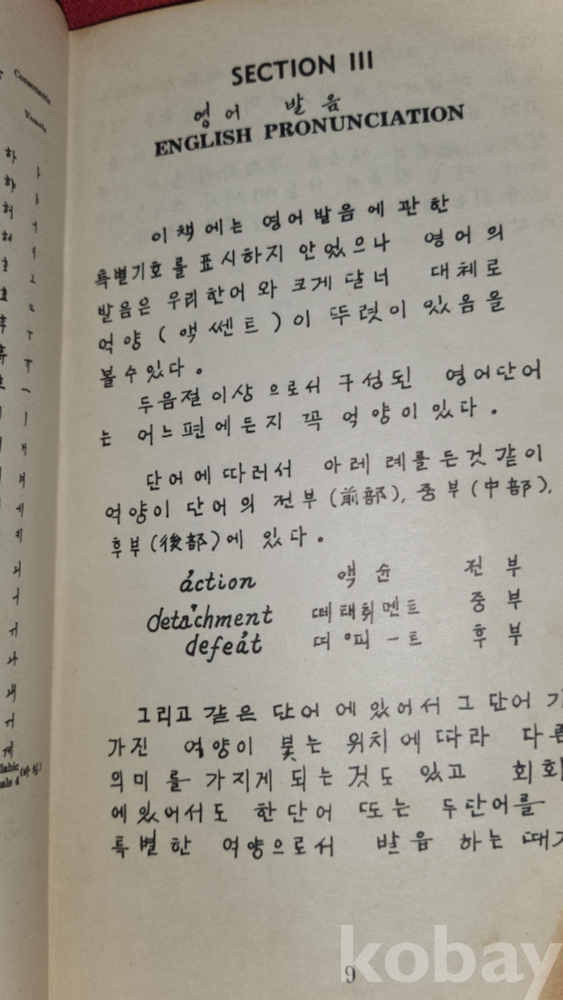 Consonants
Vowels
하
햐
허
SECTION III
영어 발음
ENGLISH PRONUNCIATION
이 책에는 영어발음에 관한
특별기호를 표시하지 안었으나 영어의
발음은 우리한어와 크게 달너 대체로
억양(액쎈트)이 뚜렷이 있음을
볼수있다.
두음절이상으로서 구성된 영어단어
는 어느편에든지 꼭 억양이있다.
단어에따러서 아레 례를든것같이
억양이 단어의 전부(前部), 중부(中部),
후부(後部)에 있다.
áction 액슌 전부
detáchment 떼태취멘트 중부
defeát 띠예피ー트 후부
그리고 같은 단어에있어서 그 단어
가진 억양이 붗는 위치에따라
의미를 가지게 되는것도 있고 회화
에있어서도 한단어 또는 두단어를
특별한 억양으로서 발음하는때
9
kobay